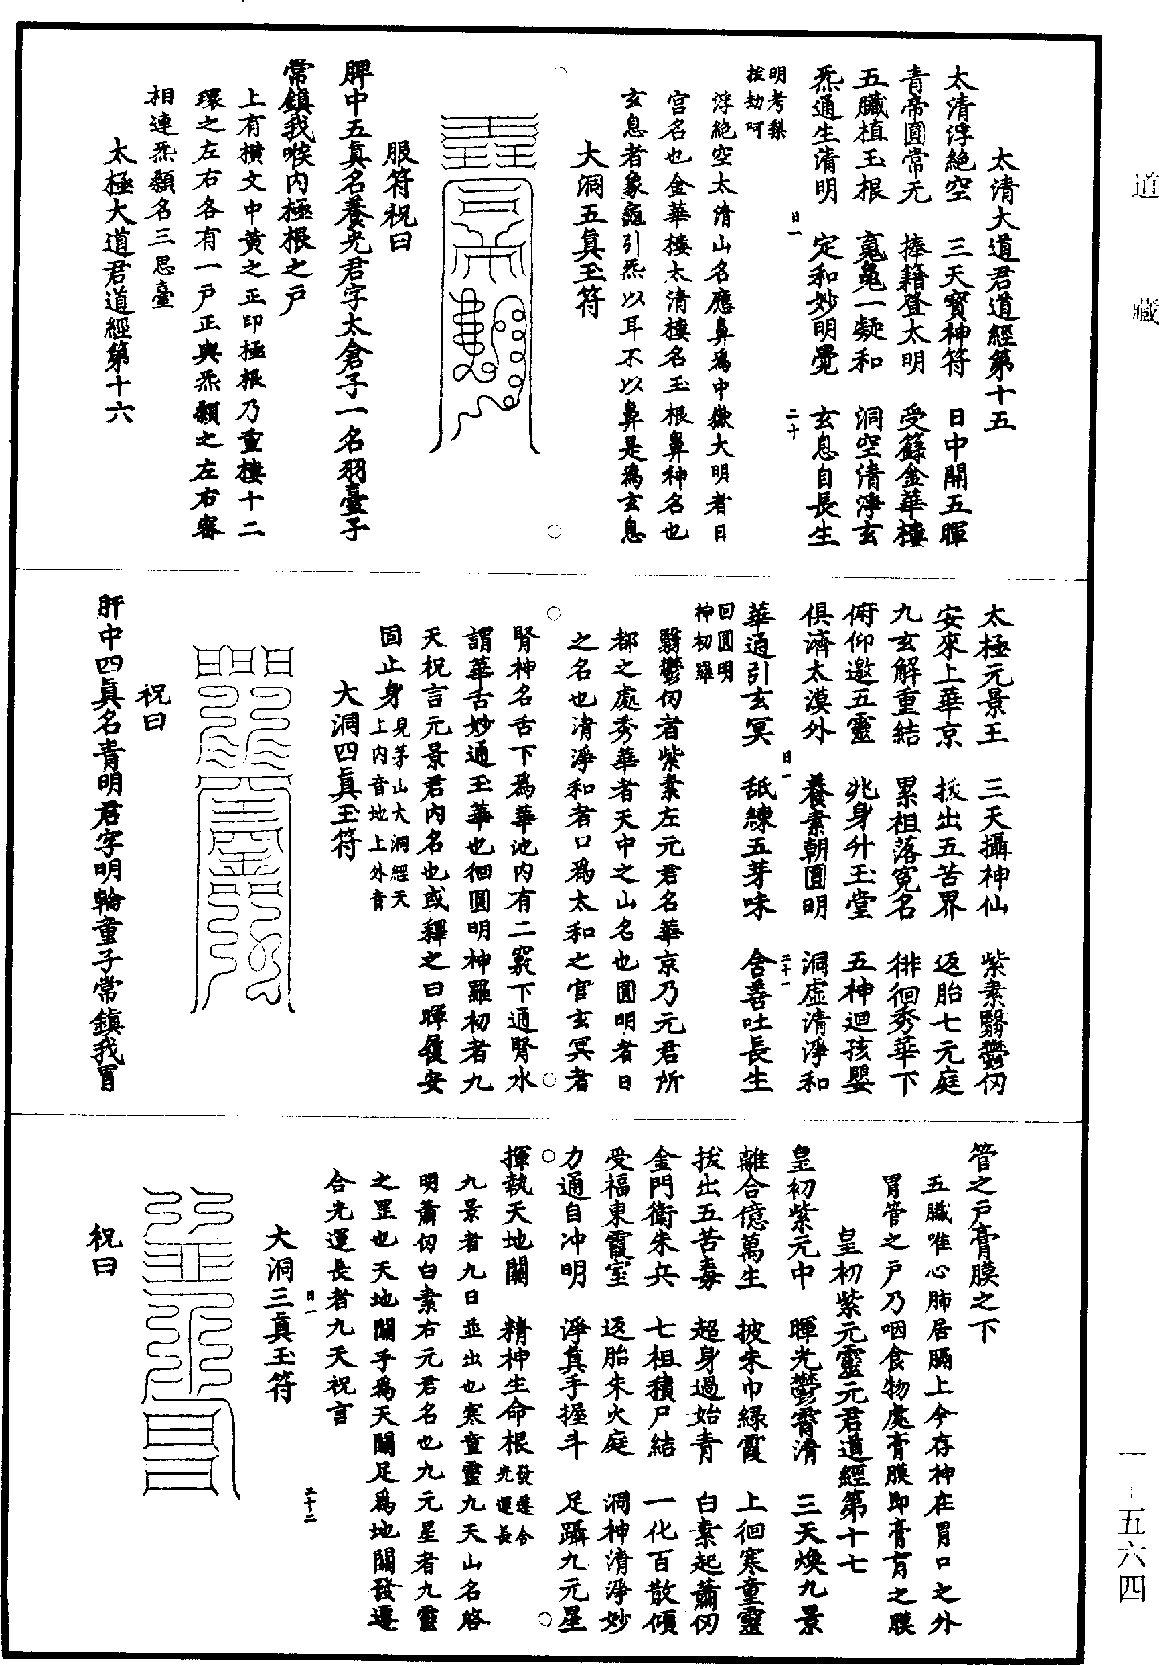 道藏
一-五六四
太清大道君道經第十五
太清浮絕空　三天寶神符　日中開五暉
青帝圓常元　捧籍登太明　受籙金華樓
五臟植玉根　寃龜一凝和　洞空清淨玄
炁通生清明　定和妙明覺　玄息自長生
日一
二十
明考梨
按劫呵
浮絕空太清山名應鼻為中嶽大明者日
宫名也金華樓太清樓名玉根鼻神名也
玄息者象龜引炁以耳不以鼻是為玄息
大洞五真玉符
服符祝曰
脾中五真名養光君字太倉子一名羽臺子
常鎮我喉內極根之戶
上有橫文中黃之正印極根乃重樓十二
環之左右各有一戶正與炁顙之左右審
相連炁顙名三思臺
太極大道君道經第十六
太極元景王　三天攝神仙　紫素翳鬱㑇
安來上華京　拔出五苦界　返胎七元庭
九玄解重結　累祖落寃名　徘徊秀華下
俯仰邀五靈　兆身升玉堂　五神迴孩嬰
俱濟太漠外　養素朝圓明　洞虛清淨和
日一
二十一
華通引玄冥　舐練五芽味　含善吐長生
回圓明
神初羅
翳鬱㑇者紫素左元君名華京乃元君所
都之處秀華者天中之山名也圓明者日
之名也清淨和者口為太和之官玄冥者
腎神名舌下為華池內有二竅下通腎水
謂華舌妙通玉華也徊圓明神羅初者九
天祝言元景君內名也或釋之曰暉復安
固止身見茅山大洞經天上內音地上外音
大洞四真玉符
祝曰
肝中四真名青明君字明輪童子常鎮我胃
管之戶膏膜之下
五臟唯心肺居膈上今存神在胃口之外
胃管之戶乃咽食物處膏膜即膏肓之膜
皇初紫元靈元君道經第十七
皇初紫元中　暉光鬱霄清　三天煥九景
離合億萬生　披朱巾綠霞　上徊寒童靈
拔出五苦毒　超身過始青　白素起蕭㑇
金門衛朱兵　七祖積尸結　一化百散傾
受福東霞室　返胎朱火庭　洞神清淨妙
力通自沖明　淨真手握斗　足躡九元星
揮執天地關　精神生命根發遷合光運長
九景者九日並出也寒童靈九天山名唘
明蕭㑇白素右元君名也九元星者九靈
之罡也天地關手為天關足為地關發遷
合光運長者九天祝言
日一
二十二
大洞三真玉符
祝曰